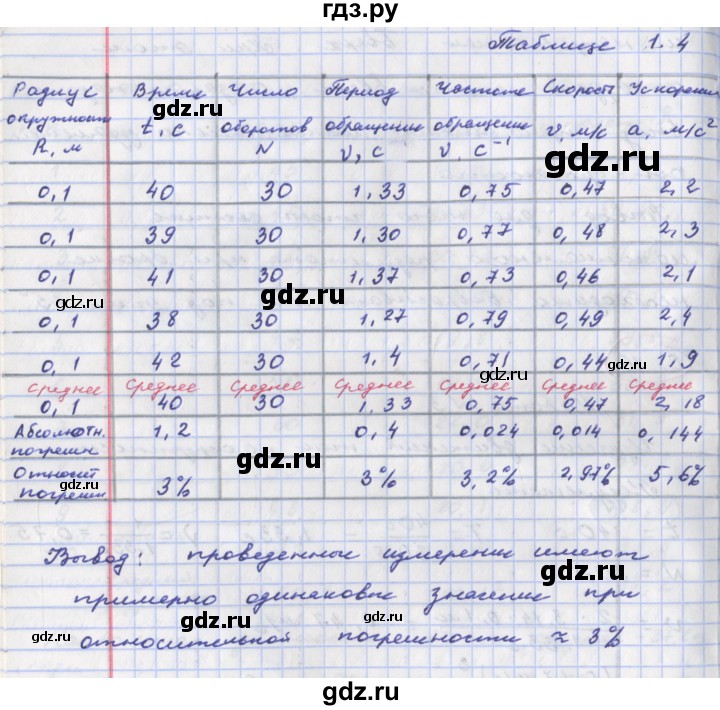 гдз.ру
Таблица 1.4
Радиус окружности R, м | Время t, c | Число оборотов N | Период обращения ν, c | Частота обращения ν, c⁻¹ | Скорость v, м/c | Ускорение a, м/c²
0,1 | 40 | 30 | 1,33 | 0,75 | 0,47 | 2,2
0,1 | 39 | 30 | 1,30 | 0,77 | 0,48 | 2,3
0,1 | 41 | 30 | 1,37 | 0,73 | 0,46 | 2,1
0,1 | 38 | 30 | 1,27 | 0,79 | 0,49 | 2,4
0,1 | 42 | 30 | 1,4 | 0,71 | 0,44 | 1,9
Среднее | Среднее | Среднее | Среднее | Среднее | Среднее | Среднее
0,1 | 40 | 30 | 1,33 | 0,75 | 0,47 | 2,18
Абсолютн. погрешн. | 1,2 | 0,4 | 0,024 | 0,014 | 0,144
Относит погрешн | 3% | 3% | 3,2% | 2,97% | 5,6%
Вывод: проведенные измерения имеют
примерно одинаковые значения при
относительной погрешности ≈ 3%
gdz.ru